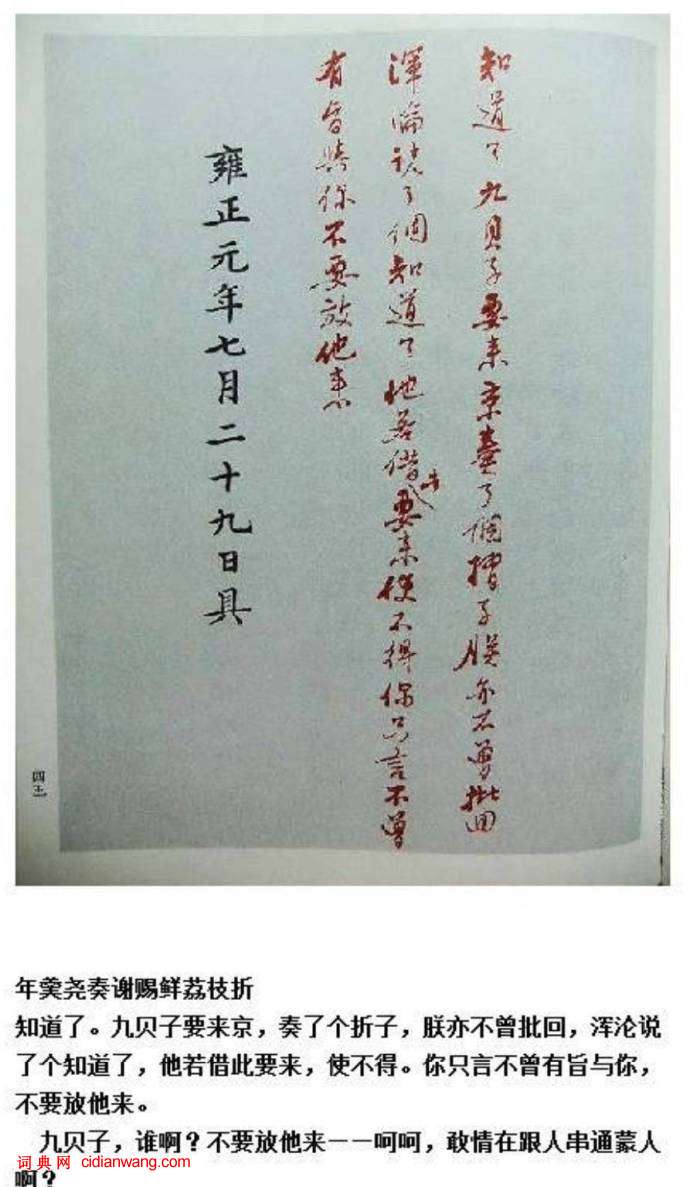 知道了九貝子要来京奏了個摺子朕亦不曾批回
渾淪说了個知道了他若借此要来使不得你只言不曾
有旨與你不要放他来
雍正元年七月二十九日具
四五
年羹尧奏谢赐鲜荔枝折
知道了。九贝子要来京，奏了个折子，朕亦不曾批回，浑沦说
了个知道了，他若借此要来，使不得。你只言不曾有旨与你，
不要放他来。
九贝子，谁啊？不要放他来——呵呵，敢情在跟人串通蒙人
啊？
词典网 cidianwang.com